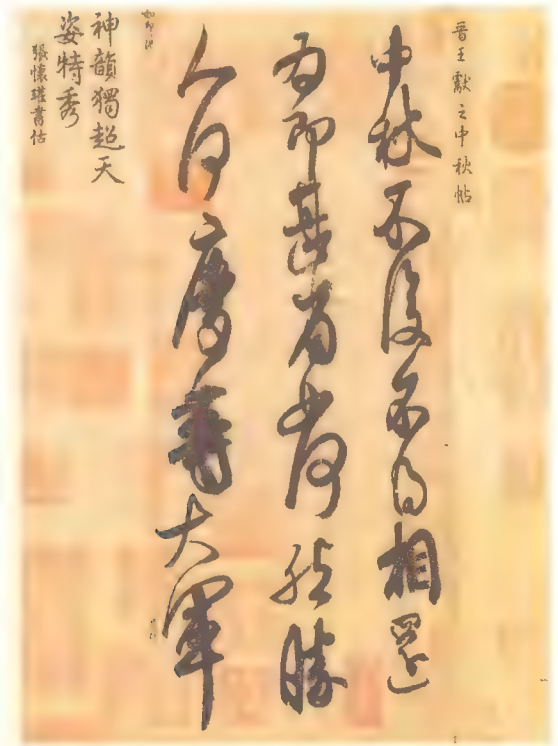 晉王獻之中秋帖
中秋不復不得相還
為即甚省如何然勝
人何慶等大軍
神韻獨超天
姿特秀
張懷瓘書估